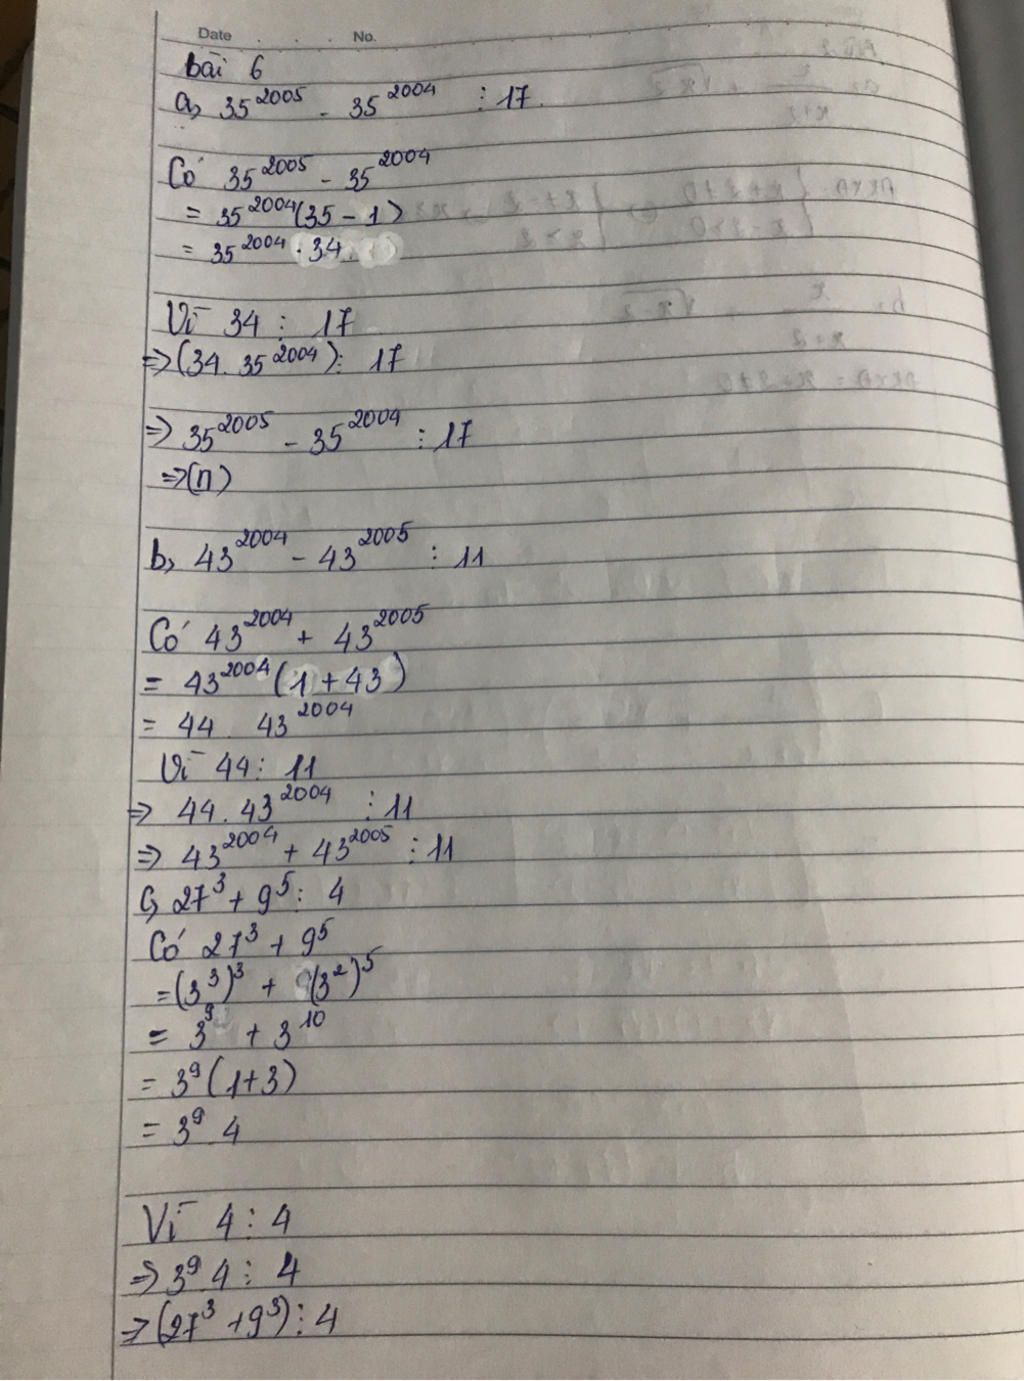 Date . . . . No.
bài 6
a, 35^2005 - 35^2004 ⋮ 17.
Có 35^2005 - 35^2004
= 35^2004(35 - 1)
= 35^2004 . 34
Vì 34 ⋮ 17
=> (34. 35^2004) ⋮ 17
=> 35^2005 - 35^2004 ⋮ 17
=> (n)
b, 43^2004 - 43^2005 ⋮ 11
Có 43^2004 + 43^2005
= 43^2004 (1 + 43)
= 44 . 43^2004
Vì 44 ⋮ 11
=> 44 . 43^2004 ⋮ 11
=> 43^2004 + 43^2005 ⋮ 11
c, 27^3 + 9^5 ⋮ 4
Có 27^3 + 9^5
= (3^3)^3 + (3^2)^5
= 3^9 + 3^10
= 3^9 (1+3)
= 3^9 4
Vì 4 ⋮ 4
=> 3^9 4 ⋮ 4
=> (27^3 + 9^3) ⋮ 4